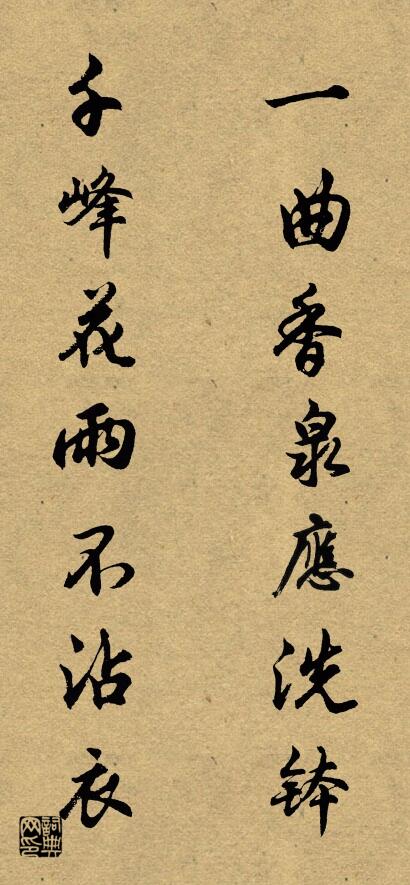 一曲香泉應洗鉢
千峰花雨不沾衣
詞典網印